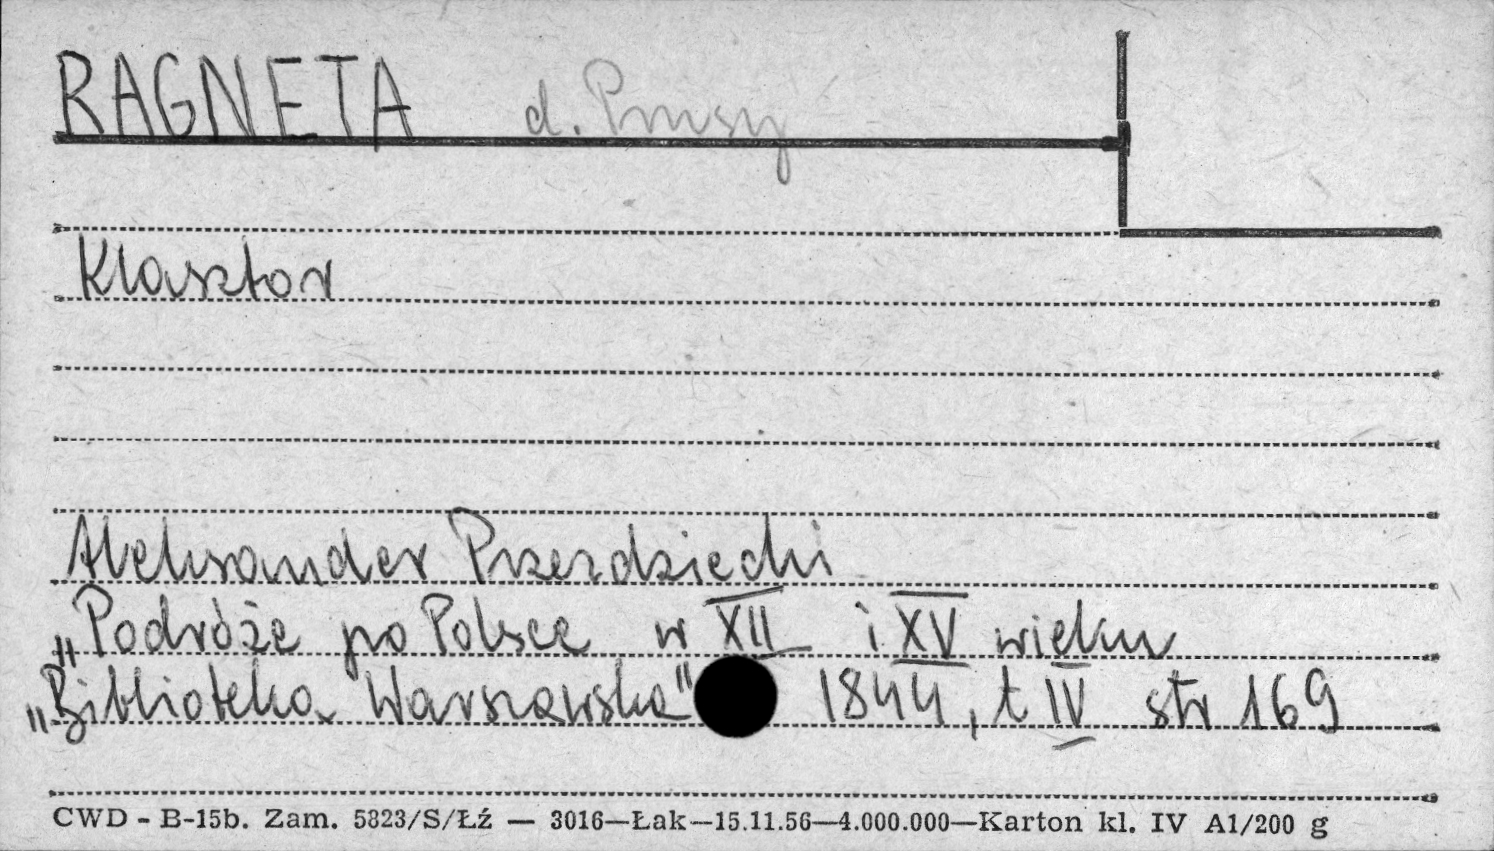 RAGNETA d. Prusy
Klasztor
Aleksander Przezdziecki
„Podróże po Polsce w XII i XV wieku
„Biblioteka Warszawska" 1844, t IV str 169
CWD - B-15b. Zam. 5823/S/Łź — 3016—Łak—15.11.56—4.000.000—Karton kl. IV A1/200 g